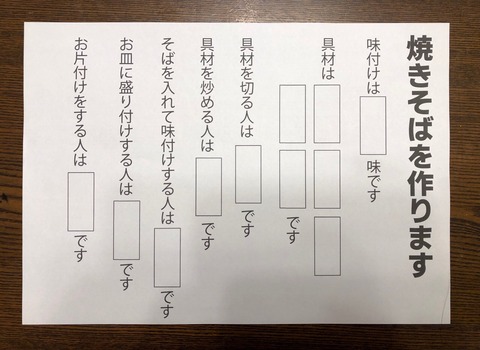 焼きそばを作ります
味付けは 味です
具材は
です
具材を切る人は です
具材を炒める人は です
そばを入れて味付けする人は です
お皿に盛り付けする人は です
お片付けをする人は です